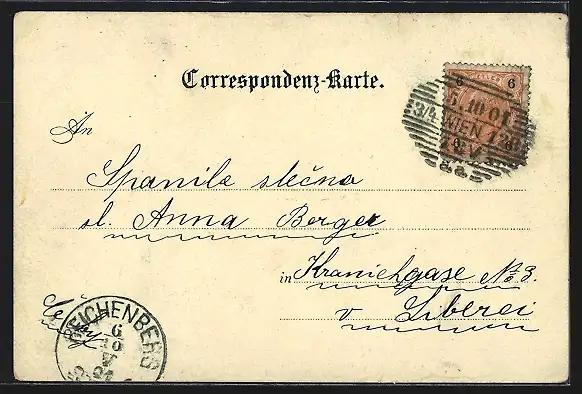 Correspondenz-Karte.
6 6
5.10 01
3/4 WIEN 1
An
Spanilá slečna
sl. Anna Berger
in Kranichgase № 3.
v Liberci
Čechy
REICHENBERG
6
10
V
01